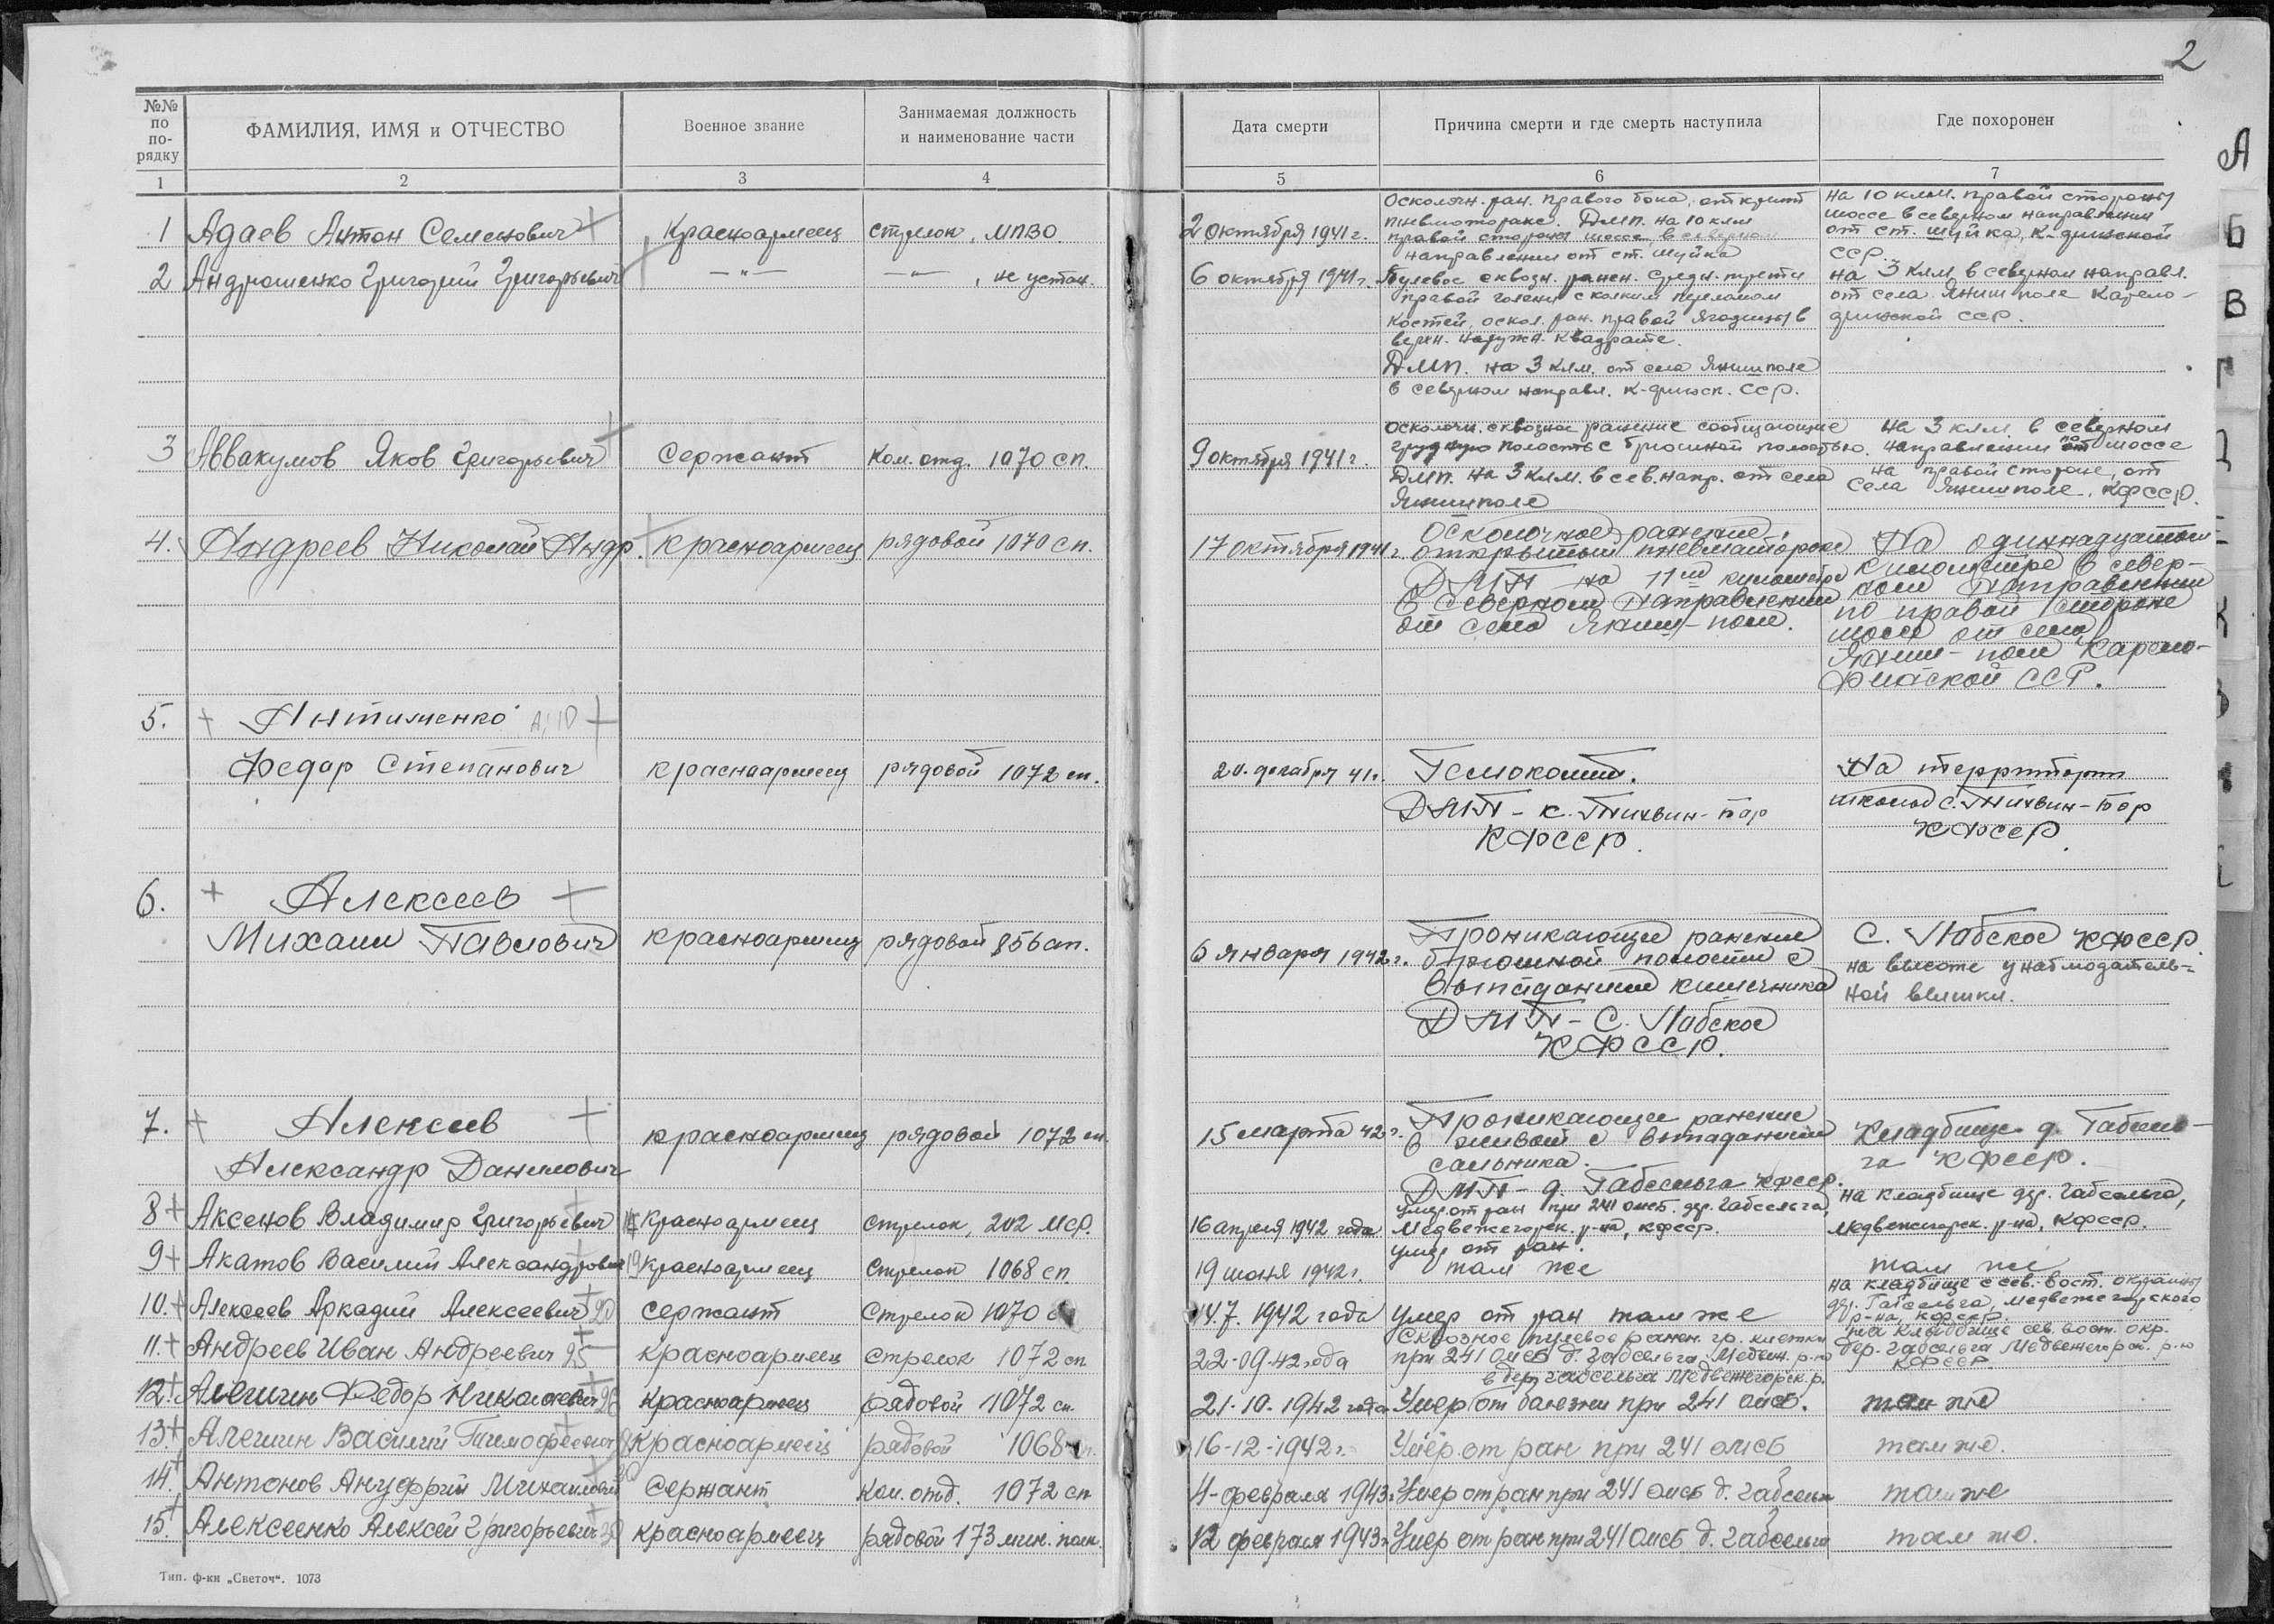 2
№№ по по- рядку
ФАМИЛИЯ, ИМЯ и ОТЧЕСТВО
Военное звание
Занимаемая должность
и наименование части
Дата смерти
Причина смерти и где смерть наступила
Где похоронен
1 2 3 4 5 6 7
1 Адаев Антон Семенович Красноармеец стрелок, МПВО 2 октября 1941 г.
Осколочн. ран. правого бока, открыт
пневмоторакс. ДМП. на 10 клм
правой стороны шоссе в северном
направлении от ст. Шуйка
на 10 клм. правой стороны
шоссе в северном направлении
от ст. Шуйка, К-финской
ССР.
2 Андрющенко Григорий Григорьевич —"— —"—, не устан. 6 октября 1941 г.
Пулевое сквозн. ранен. средн. трети
правой голени с колким переломом
костей, оскол. ран. правой ягодицы в
верхн. наружн. квадрате.
ДМП. на 3 клм. от села Янишполе
в северном направл. К-финск. ССР.
на 3 клм в северном направл.
от села Янишполе Карело-
финской ССР.
3 Аввакумов Яков Григорьевич Сержант Ком. отд. 1070 сп. 9 октября 1941 г.
осколочн. сквозное ранение сообщающие
грудную полость с брюшной полостью.
ДМП. на 3 клм. в сев. напр. от села
Янишполе
на 3 клм в северном
направлении по шоссе
на правой стороне, от
села Янишполе, КФССР.
4. Андреев Николай Андр. красноармеец рядовой 1070 сп. 17 октября 1941 г.
Осколочное ранение,
открытый пневматоракс
ДМП на 11м километре
в северном направлении
от села Яниш-поле.
На одиннадцатом
километре в север-
ном направлении
по правой стороне
шоссе от села
Яниш-поле Карело-
Финской ССР.
5. + Антименко +
Федор Степанович красноармеец рядовой 1072 сп. 20. декабря 41 г.
ДМП - к. Тихвин-Бор
КФССР.
На территории
школы с. Тихвин-Бор
КФССР.
6. + Алексеев +
Михаил Павлович красноармеец рядовой 856 ап. 6 января 1942 г.
Проникающее ранение
брюшной полости с
выпадением кишечника
ДМП - с. Лобское
КФССР.
С. Лобское КФССР
на высоте у наблюдатель-
ной вышки.
7. + Алексеев +
Александр Данилович красноармеец рядовой 1072 сп. 15 марта 42 г.
Проникающее ранение
в живот с выпадением
сальника.
ДМП - д. Габсельга КФССР.
Кладбище д. Габсель-
га КФССР.
8 + Аксенов Владимир Григорьевич Красноармеец стрелок, 202 МСР. 16 апреля 1942 года
умер от ран при 241 омсб. дер. Габсельга,
Медвежегорск. р-на, КФССР.
на кладбище дер. Габсельга,
Медвежегорск. р-на, КФССР.
9 + Акатов Василий Александрович 19 Красноармеец Стрелок 1068 сп. 19 июня 1942 г.
умер от ран.
там же
там же
10. + Алексеев Аркадий Алексеевич 20 сержант Стрелок 1070 14.7. 1942 года Умер от ран там же
на кладбище с сев. вост. окраины
дер. Габсельга, Медвежегорского
р-на, КФССР.
11. + Андреев Иван Андреевич 25 красноармеец стрелок 1072 сп 22-09-42 года
Сквозное пулевое ранен. гр. клетки
при 241 омсб д. Габсельга Медвеж. р-н
на кладбище сев. вост. окр.
дер. Габсельга Медвежегорск. р-н
КФССР
12. + Алешин Федор Николаевич 26 красноармеец рядовой 1072 сп 21-10-1942 года
в дер. Габсельга Медвежегорск. р.
Умер от болезни при 241 омсб.
там же
13. + Алешин Василий Тимофеевич красноармеец рядовой 1068 16-12-1942 г. Умер от ран при 241 омсб там же.
14. + Антонов Ануфрий Михайлович 30 Сержант ком. отд. 1072 сп 4-февраля 1943 г. Умер от ран при 241 омсб д. Габсельга там же
15. + Алексеенко Алексей Григорьевич 30 красноармеец рядовой 173 мин. полк. 12 февраля 1943 г. Умер от ран при 241 омсб д. Габсельга там же.
Тип. ф-ки „Светоч". 1073
А
Б
В
Г
Д